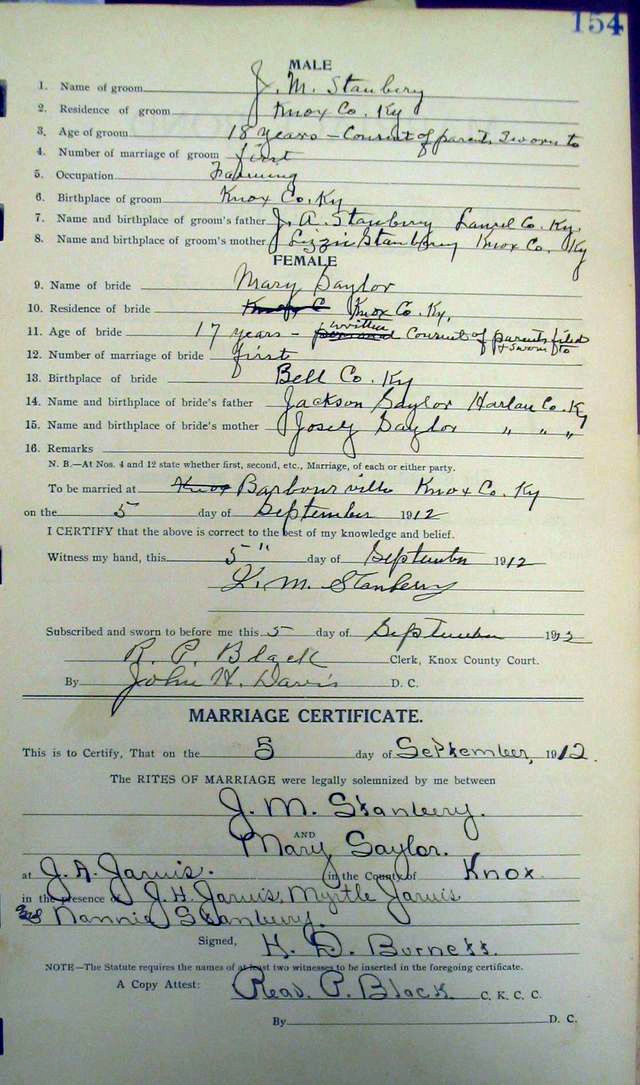 154
MALE
1. Name of groom J. M. Stanbery
2. Residence of groom Knox Co. Ky
3. Age of groom 18 years - Consent of parents sworn to
4. Number of marriage of groom first
5. Occupation Farming
6. Birthplace of groom Knox Co. Ky
7. Name and birthplace of groom's father J. A. Stanberry Laurel Co. Ky.
8. Name and birthplace of groom's mother Lizzie Stanberry Knox Co. Ky
FEMALE
9. Name of bride Mary Saylor
10. Residence of bride Knox C Knox Co. Ky.
11. Age of bride 17 years - written Consent of parents filed
& sworn to
12. Number of marriage of bride first
13. Birthplace of bride Bell Co. Ky
14. Name and birthplace of bride's father Jackson Saylor Harlan Co. Ky
15. Name and birthplace of bride's mother Josely Saylor " " "
16. Remarks
N. B.—At Nos. 4 and 12 state whether first, second, etc., Marriage, of each or either party.
To be married at Knox Barbourville Knox Co. Ky
on the 5 day of September 1912
I CERTIFY that the above is correct to the best of my knowledge and belief.
Witness my hand, this 5" day of September 1912
J. M. Stanberry
Subscribed and sworn to before me this 5 day of September 1912
R. P. Black Clerk, Knox County Court.
By John H. Davis D. C.
MARRIAGE CERTIFICATE.
This is to Certify, That on the 5 day of September, 1912.
The RITES OF MARRIAGE were legally solemnized by me between
J. M. Stanbery.
AND
Mary Saylor.
at J. A. Jarvis. in the County of Knox
in the presence of J. H. Jarvis, Myrtle Jarvis
and Nannie Stanbery.
Signed, H. D. Burness.
NOTE—The Statute requires the names of at least two witnesses to be inserted in the foregoing certificate.
A Copy Attest: Read P. Black C. K. C. C.
By D. C.